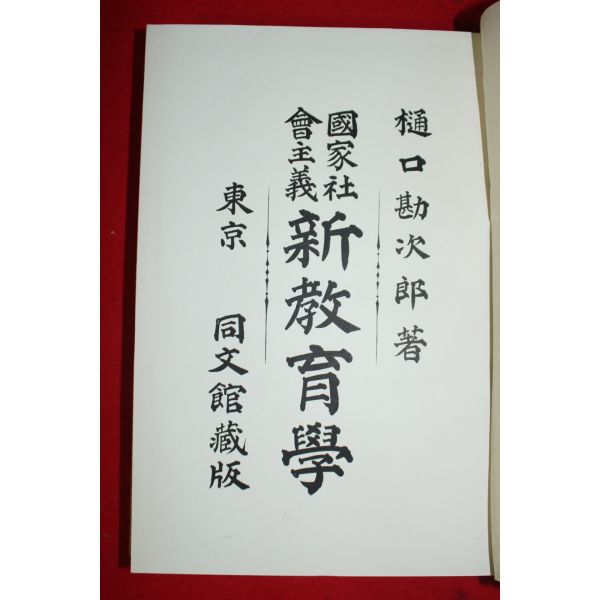 樋口勘次郎著
國家社
會主義
新敎育學
東京 同文館藏版